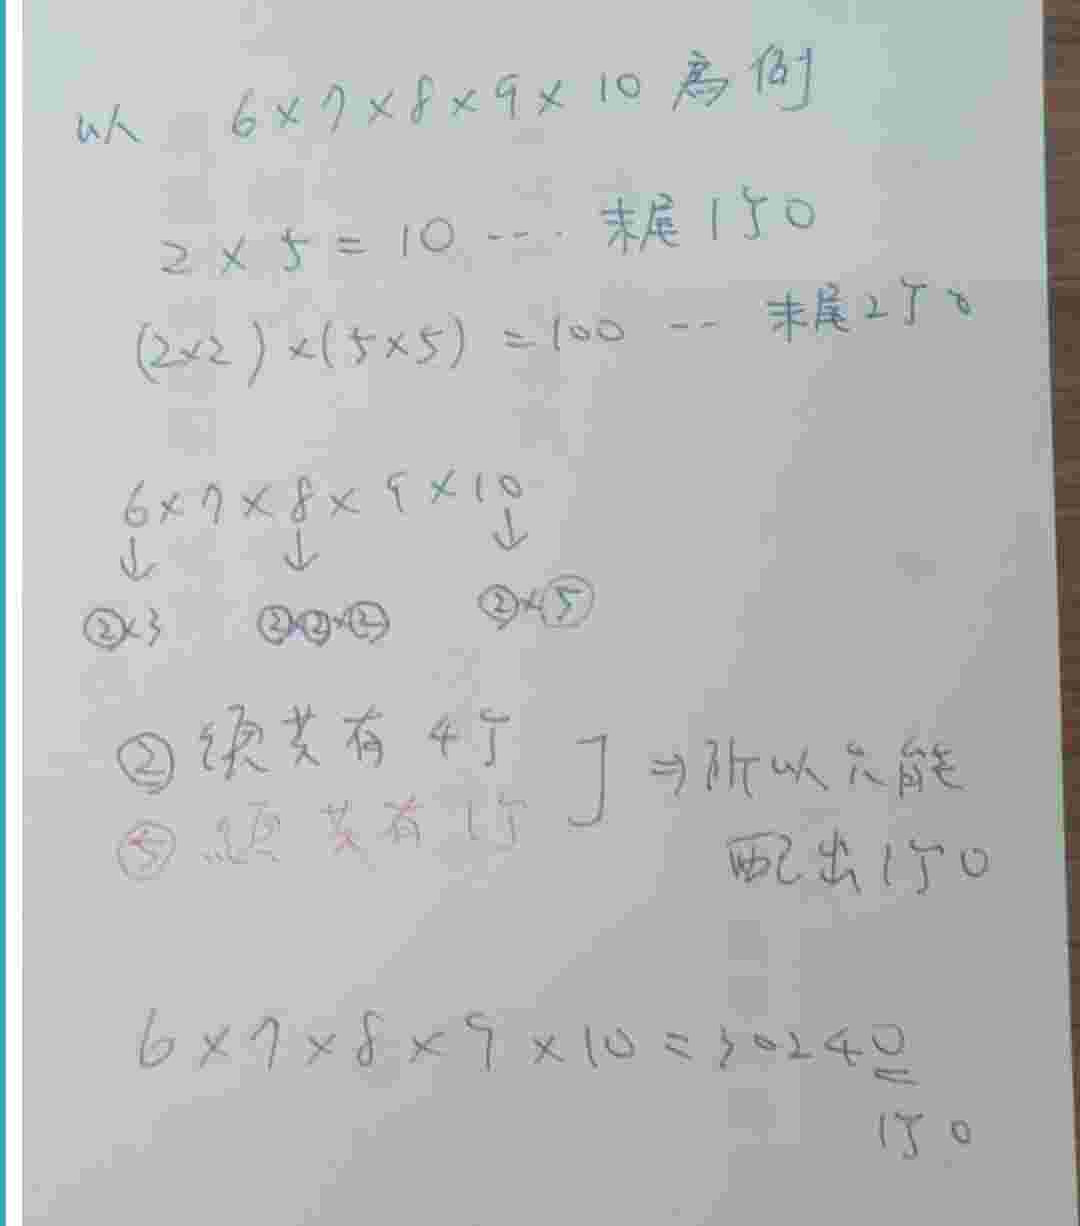 以 6×7×8×9×10 為例
2×5=10 ... 末尾1个0
(2×2)×(5×5)=100 -- 末尾2个0
6×7×8×9×10
↓ ↓ ↓
②×3 ②×②×② ②×⑤
② 共有 4个
⑤ 共有 1个 ] ⇒所以只能
配出1个0
6×7×8×9×10=30240
1个0